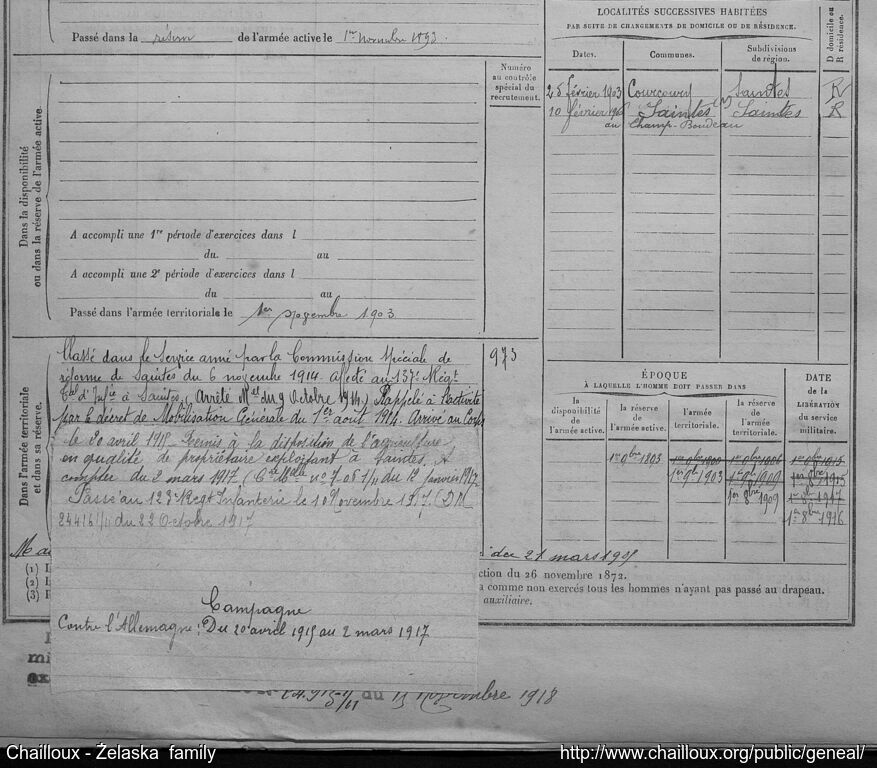 Passé dans la réserve de l'armée active le 1er Novembre 1893.
Dans la disponibilité
ou dans la réserve de l'armée active.
Numéro
au contrôle
spécial du
recrutement.
A accompli une 1re période d'exercices dans l
du. au
A accompli une 2e période d'exercices dans l
du au
Passé dans l'armée territoriale le 1er Novembre 1903.
Dans l'armée territoriale
et dans sa réserve.
973
Classé dans le Service armé par la Commission Spéciale de
réforme de Saintes du 6 novembre 1914. affecté au 137e Régt
Tal d'Infie à Saintes, (Arrêté Mel du 9 Octobre 1914) Rappelé à l'activité
par le décret de Mobilisation Générale du 1er août 1914. Arrivé au Corps
le 20 avril 1915. Remis à la disposition de l'agriculture
en qualité de propriétaire exploitant à Saintes. A
compter du 2 mars 1917 (Cre Melle no 7.061/11 du 12 janvier 1917
Passé au 123e Régt Infanterie le 10 Novembre 1917. (D M
24416 1/11 du 22 Octobre 1917
Campagne
Contre l'Allemagne: Du 20 avril 1915 au 2 mars 1917
LOCALITÉS SUCCESSIVES HABITÉES
PAR SUITE DE CHANGEMENTS DE DOMICILE OU DE RÉSIDENCE.
Dates. Communes. Subdivisions
de région.
D domicile ou
R résidence.
25 février 1903 Courcoury Saintes R
10 février Saintes Saintes R
au Champ-Boudeau
ÉPOQUE
À LAQUELLE L'HOMME DOIT PASSER DANS
la
disponibilité
de
l'armée active.
la réserve
de
l'armée active.
l'armée
territoriale.
la réserve
de l'armée
territoriale.
DATE
de la
LIBÉRATION
du service
militaire.
1er 9bre 1893 1er 9bre 1900 1er 9bre 1906 1er 9bre 1915
1er 9bre 1903 1er 9bre 1909 1er 8bre 1915
1er 8bre 1909 1er 8bre 1917
1er 8bre 1916
21 mars 1905
(1)
(2)
(3)
ction du 26 novembre 1872.
a comme non exercés tous les hommes n'ayant pas passé au drapeau.
auxiliaire.
du 15 Novembre 1918
Chailloux - Żelaska family
http://www.chailloux.org/public/geneal/